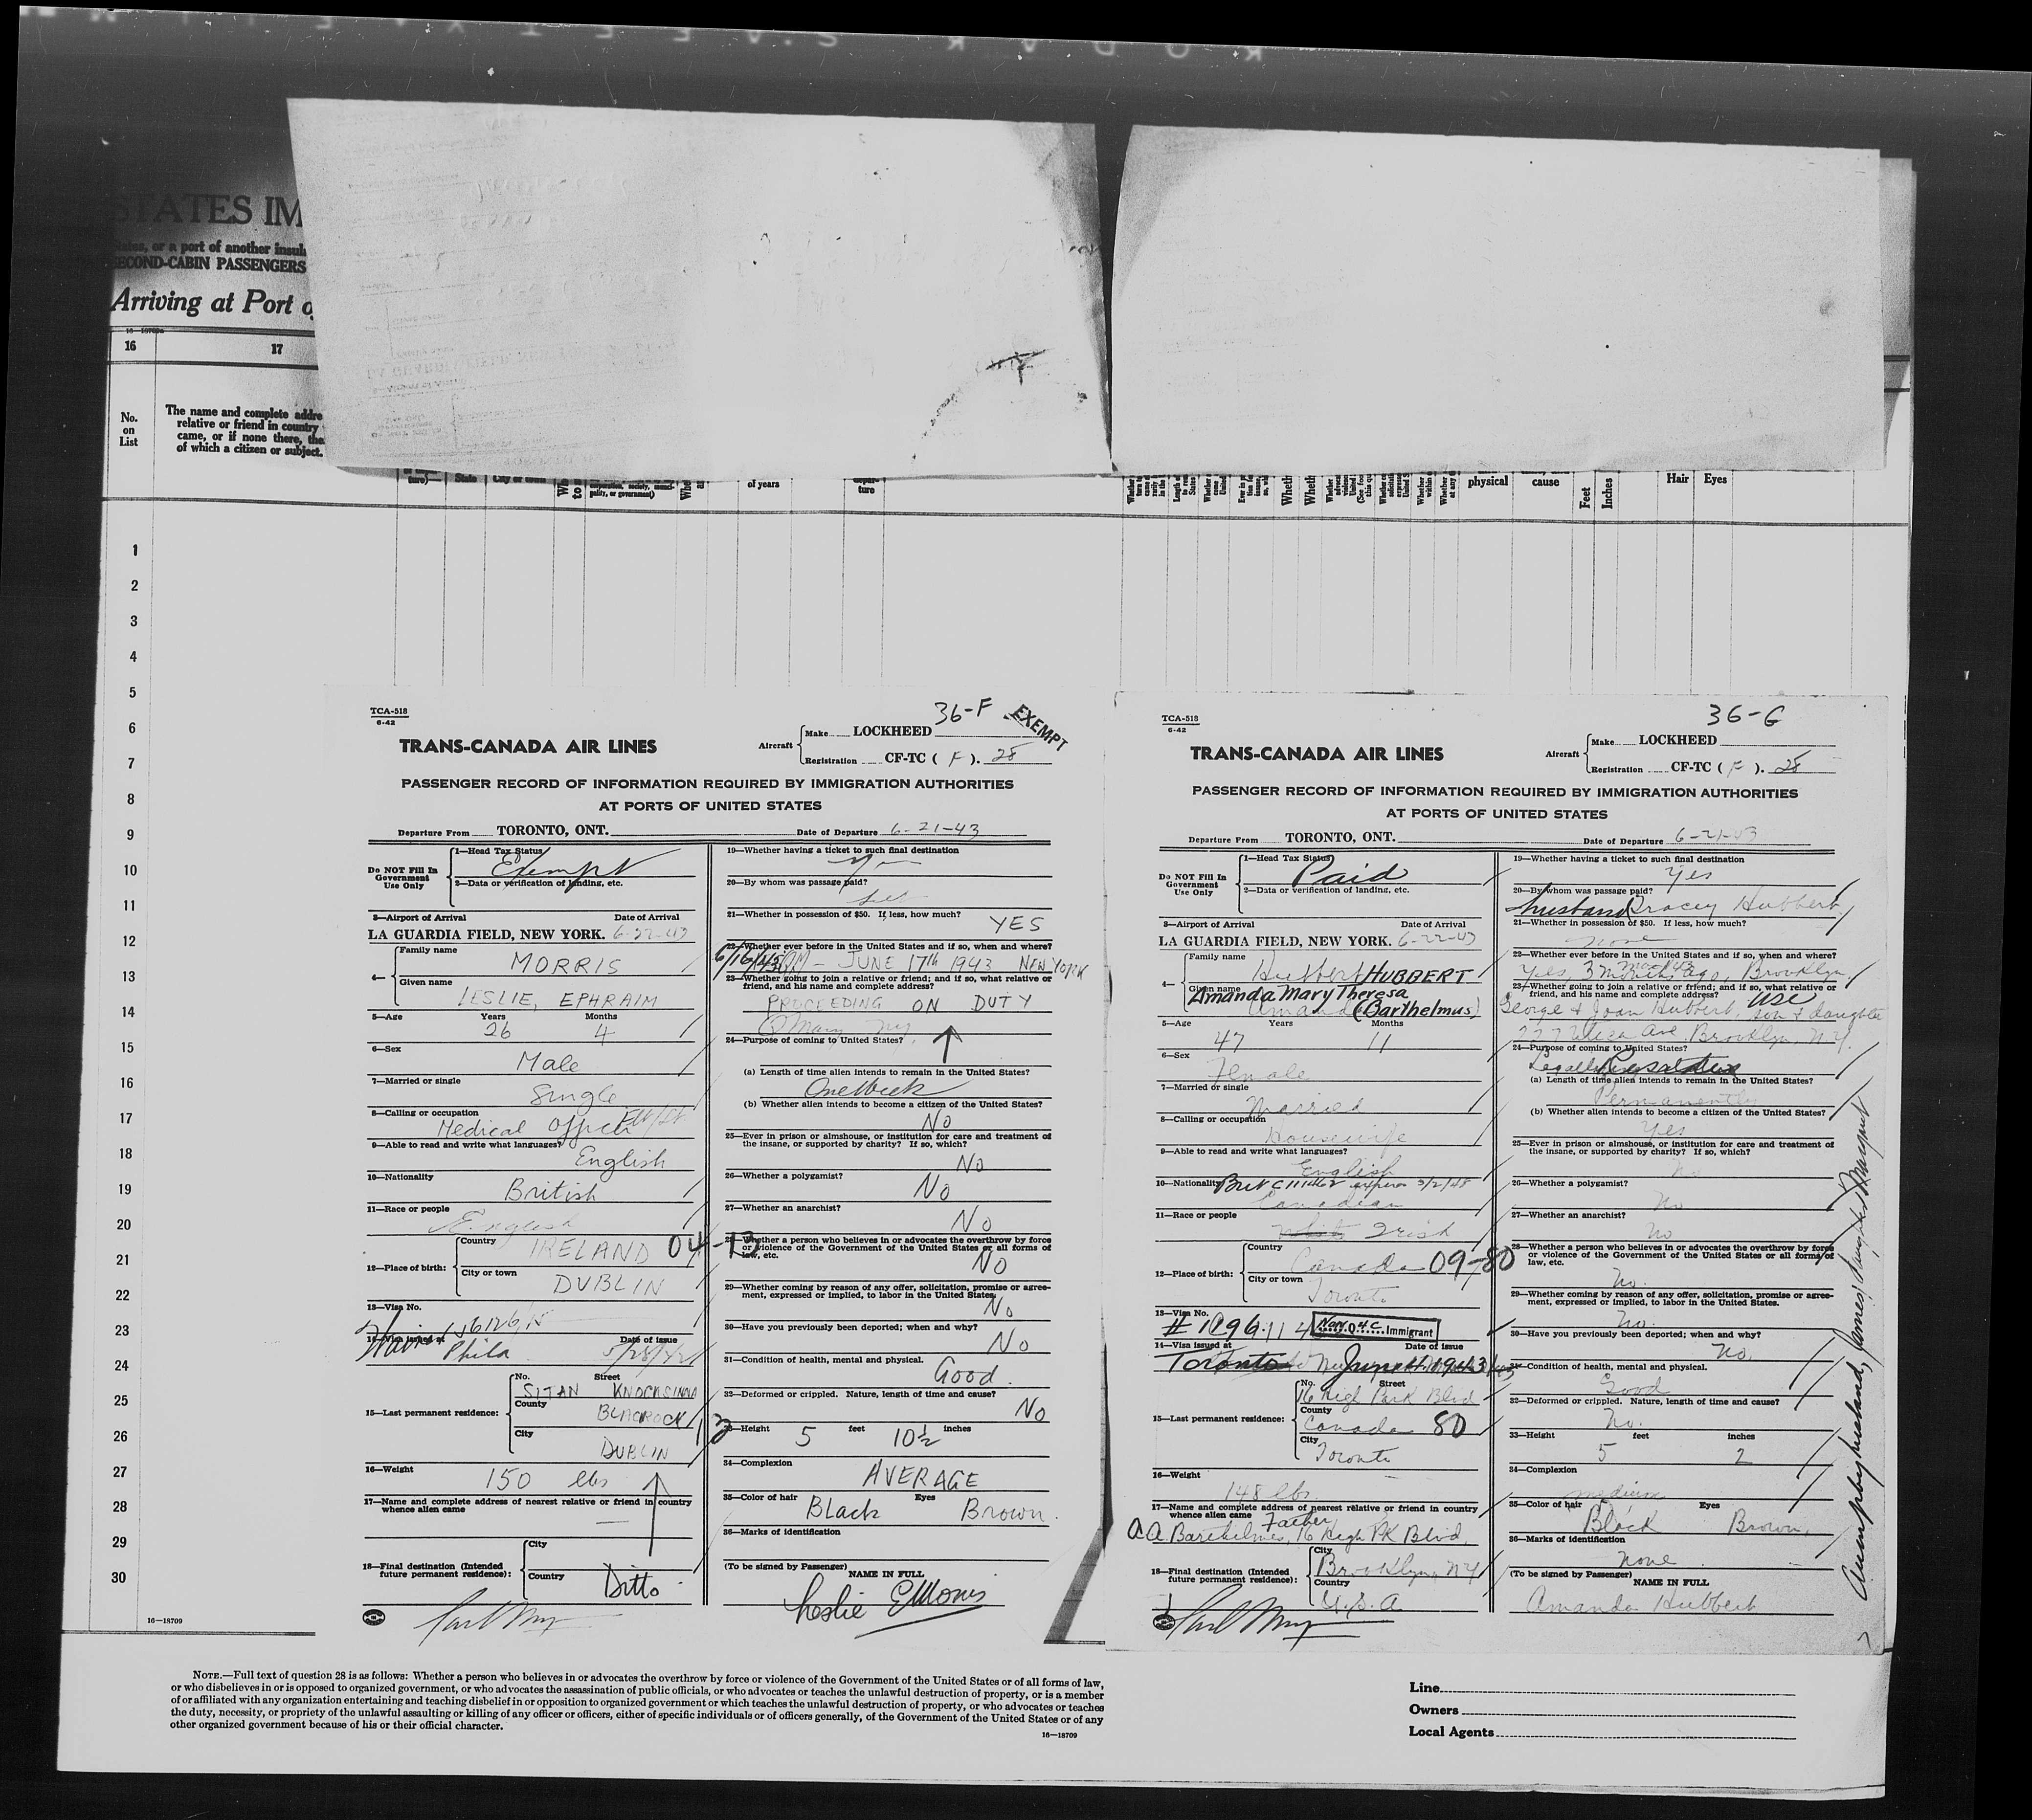 KODAK SAFETY
STATES IM
States, or a port of another insul
SECOND-CABIN PASSENGERS
Arriving at Port o
16—18709
16
17
No.
on
List
The name and complete addre
relative or friend in country
came, or if none there, the
of which a citizen or subject.
State
City or town
of years
ture
physical
cause
Feet
Inches
Hair
Eyes
1
2
3
4
5
6
7
8
9
10
11
12
13
14
15
16
17
18
19
20
21
22
23
24
25
26
27
28
29
30
16—18709
TCA-518
6-42
36-F
EXEMPT
TRANS-CANADA AIR LINES
Aircraft
Make LOCKHEED
Registration CF-TC ( F ). 28
PASSENGER RECORD OF INFORMATION REQUIRED BY IMMIGRATION AUTHORITIES
AT PORTS OF UNITED STATES
Departure From TORONTO, ONT. Date of Departure 6-21-43
Do NOT Fill In
Government
Use Only
1—Head Tax Status
Exempt
2—Data or verification of landing, etc.
3—Airport of Arrival Date of Arrival
LA GUARDIA FIELD, NEW YORK. 6-22-43
4—
Family name
MORRIS
Given name
LESLIE, EPHRAIM
5—Age Years Months
26 4
6—Sex
Male
7—Married or single
Single
8—Calling or occupation
Medical Officer
9—Able to read and write what languages?
English
10—Nationality
British
11—Race or people
English
12—Place of birth:
Country
IRELAND 04-13
City or town
DUBLIN
13—Visa No.
14—Visa issued at Date of issue
Phila 5/28/42
15—Last permanent residence:
No. Street
SITAN KNOCKSINNA
County
BLACROCK
City
DUBLIN
16—Weight
150 lbs
17—Name and complete address of nearest relative or friend in country
whence alien came
18—Final destination (Intended
future permanent residence):
City
Country
Ditto
19—Whether having a ticket to such final destination
Yes
20—By whom was passage paid?
Self
21—Whether in possession of $50. If less, how much?
YES
22—Whether ever before in the United States and if so, when and where?
6/16/43 JUNE 17th 1943 NEW YORK
23—Whether going to join a relative or friend; and if so, what relative or
friend, and his name and complete address?
PROCEEDING ON DUTY
24—Purpose of coming to United States?
(a) Length of time alien intends to remain in the United States?
One Week
(b) Whether alien intends to become a citizen of the United States?
No
25—Ever in prison or almshouse, or institution for care and treatment of
the insane, or supported by charity? If so, which?
No
26—Whether a polygamist?
No
27—Whether an anarchist?
No
28—Whether a person who believes in or advocates the overthrow by force
or violence of the Government of the United States or all forms of
law, etc.
No
29—Whether coming by reason of any offer, solicitation, promise or agree-
ment, expressed or implied, to labor in the United States.
No
30—Have you previously been deported; when and why?
No
31—Condition of health, mental and physical.
Good.
32—Deformed or crippled. Nature, length of time and cause?
No
33—Height 5 feet 10½ inches
34—Complexion
AVERAGE
35—Color of hair Eyes
Black Brown.
36—Marks of identification
(To be signed by Passenger)
NAME IN FULL
Leslie E Morris
TCA-518
6-42
36-G
TRANS-CANADA AIR LINES
Aircraft
Make LOCKHEED
Registration CF-TC ( F ). 28
PASSENGER RECORD OF INFORMATION REQUIRED BY IMMIGRATION AUTHORITIES
AT PORTS OF UNITED STATES
Departure From TORONTO, ONT. Date of Departure 6-21-43
Do NOT Fill In
Government
Use Only
1—Head Tax Status
Paid
2—Data or verification of landing, etc.
3—Airport of Arrival Date of Arrival
LA GUARDIA FIELD, NEW YORK. 6-22-43
4—
Family name
Hubbert HUBBERT
Given name
Amanda Mary Theresa
Amanda (Barthelmus)
5—Age Years Months
47 11
6—Sex
Female
7—Married or single
Married
8—Calling or occupation
Housewife
9—Able to read and write what languages?
English
10—Nationality
Canadian
11—Race or people
Irish
12—Place of birth:
Country
Canada 09-80
City or town
Toronto
13—Visa No.
Immigrant
14—Visa issued at Date of issue
Toronto
15—Last permanent residence:
No. Street
16 High Park Blvd
County
Canada 80
City
Toronto
16—Weight
148 lbs
17—Name and complete address of nearest relative or friend in country
whence alien came Father
16 High Pk Blvd,
18—Final destination (Intended
future permanent residence):
City
Brooklyn, NY
Country
U.S.A.
19—Whether having a ticket to such final destination
Yes
20—By whom was passage paid?
husband Tracey Hubbert
21—Whether in possession of $50. If less, how much?
none
22—Whether ever before in the United States and if so, when and where?
Yes, 3 months ago, Brooklyn.
23—Whether going to join a relative or friend; and if so, what relative or
friend, and his name and complete address?
George & Joan Hubbert, son & daughter
227 Utica Ave, Brooklyn, N.Y.
24—Purpose of coming to United States?
(a) Length of time alien intends to remain in the United States?
Permanently
(b) Whether alien intends to become a citizen of the United States?
Yes
25—Ever in prison or almshouse, or institution for care and treatment of
the insane, or supported by charity? If so, which?
No
26—Whether a polygamist?
No
27—Whether an anarchist?
No
28—Whether a person who believes in or advocates the overthrow by force
or violence of the Government of the United States or all forms of
law, etc.
No.
29—Whether coming by reason of any offer, solicitation, promise or agree-
ment, expressed or implied, to labor in the United States.
No.
30—Have you previously been deported; when and why?
No.
31—Condition of health, mental and physical.
Good
32—Deformed or crippled. Nature, length of time and cause?
No.
33—Height feet inches
5 2
34—Complexion
medium
35—Color of hair Eyes
Black Brown.
36—Marks of identification
none
(To be signed by Passenger)
NAME IN FULL
Amanda Hubbert
NOTE.—Full text of question 28 is as follows: Whether a person who believes in or advocates the overthrow by force or violence of the Government of the United States or of all forms of law,
or who disbelieves in or is opposed to organized government, or who advocates the assassination of public officials, or who advocates or teaches the unlawful destruction of property, or is a member
of or affiliated with any organization entertaining and teaching disbelief in or opposition to organized government or which teaches the unlawful destruction of property, or who advocates or teaches
the duty, necessity, or propriety of the unlawful assaulting or killing of any officer or officers, either of specific individuals or of officers generally, of the Government of the United States or of any
other organized government because of his or their official character.
16—18709
Line
Owners
Local Agents